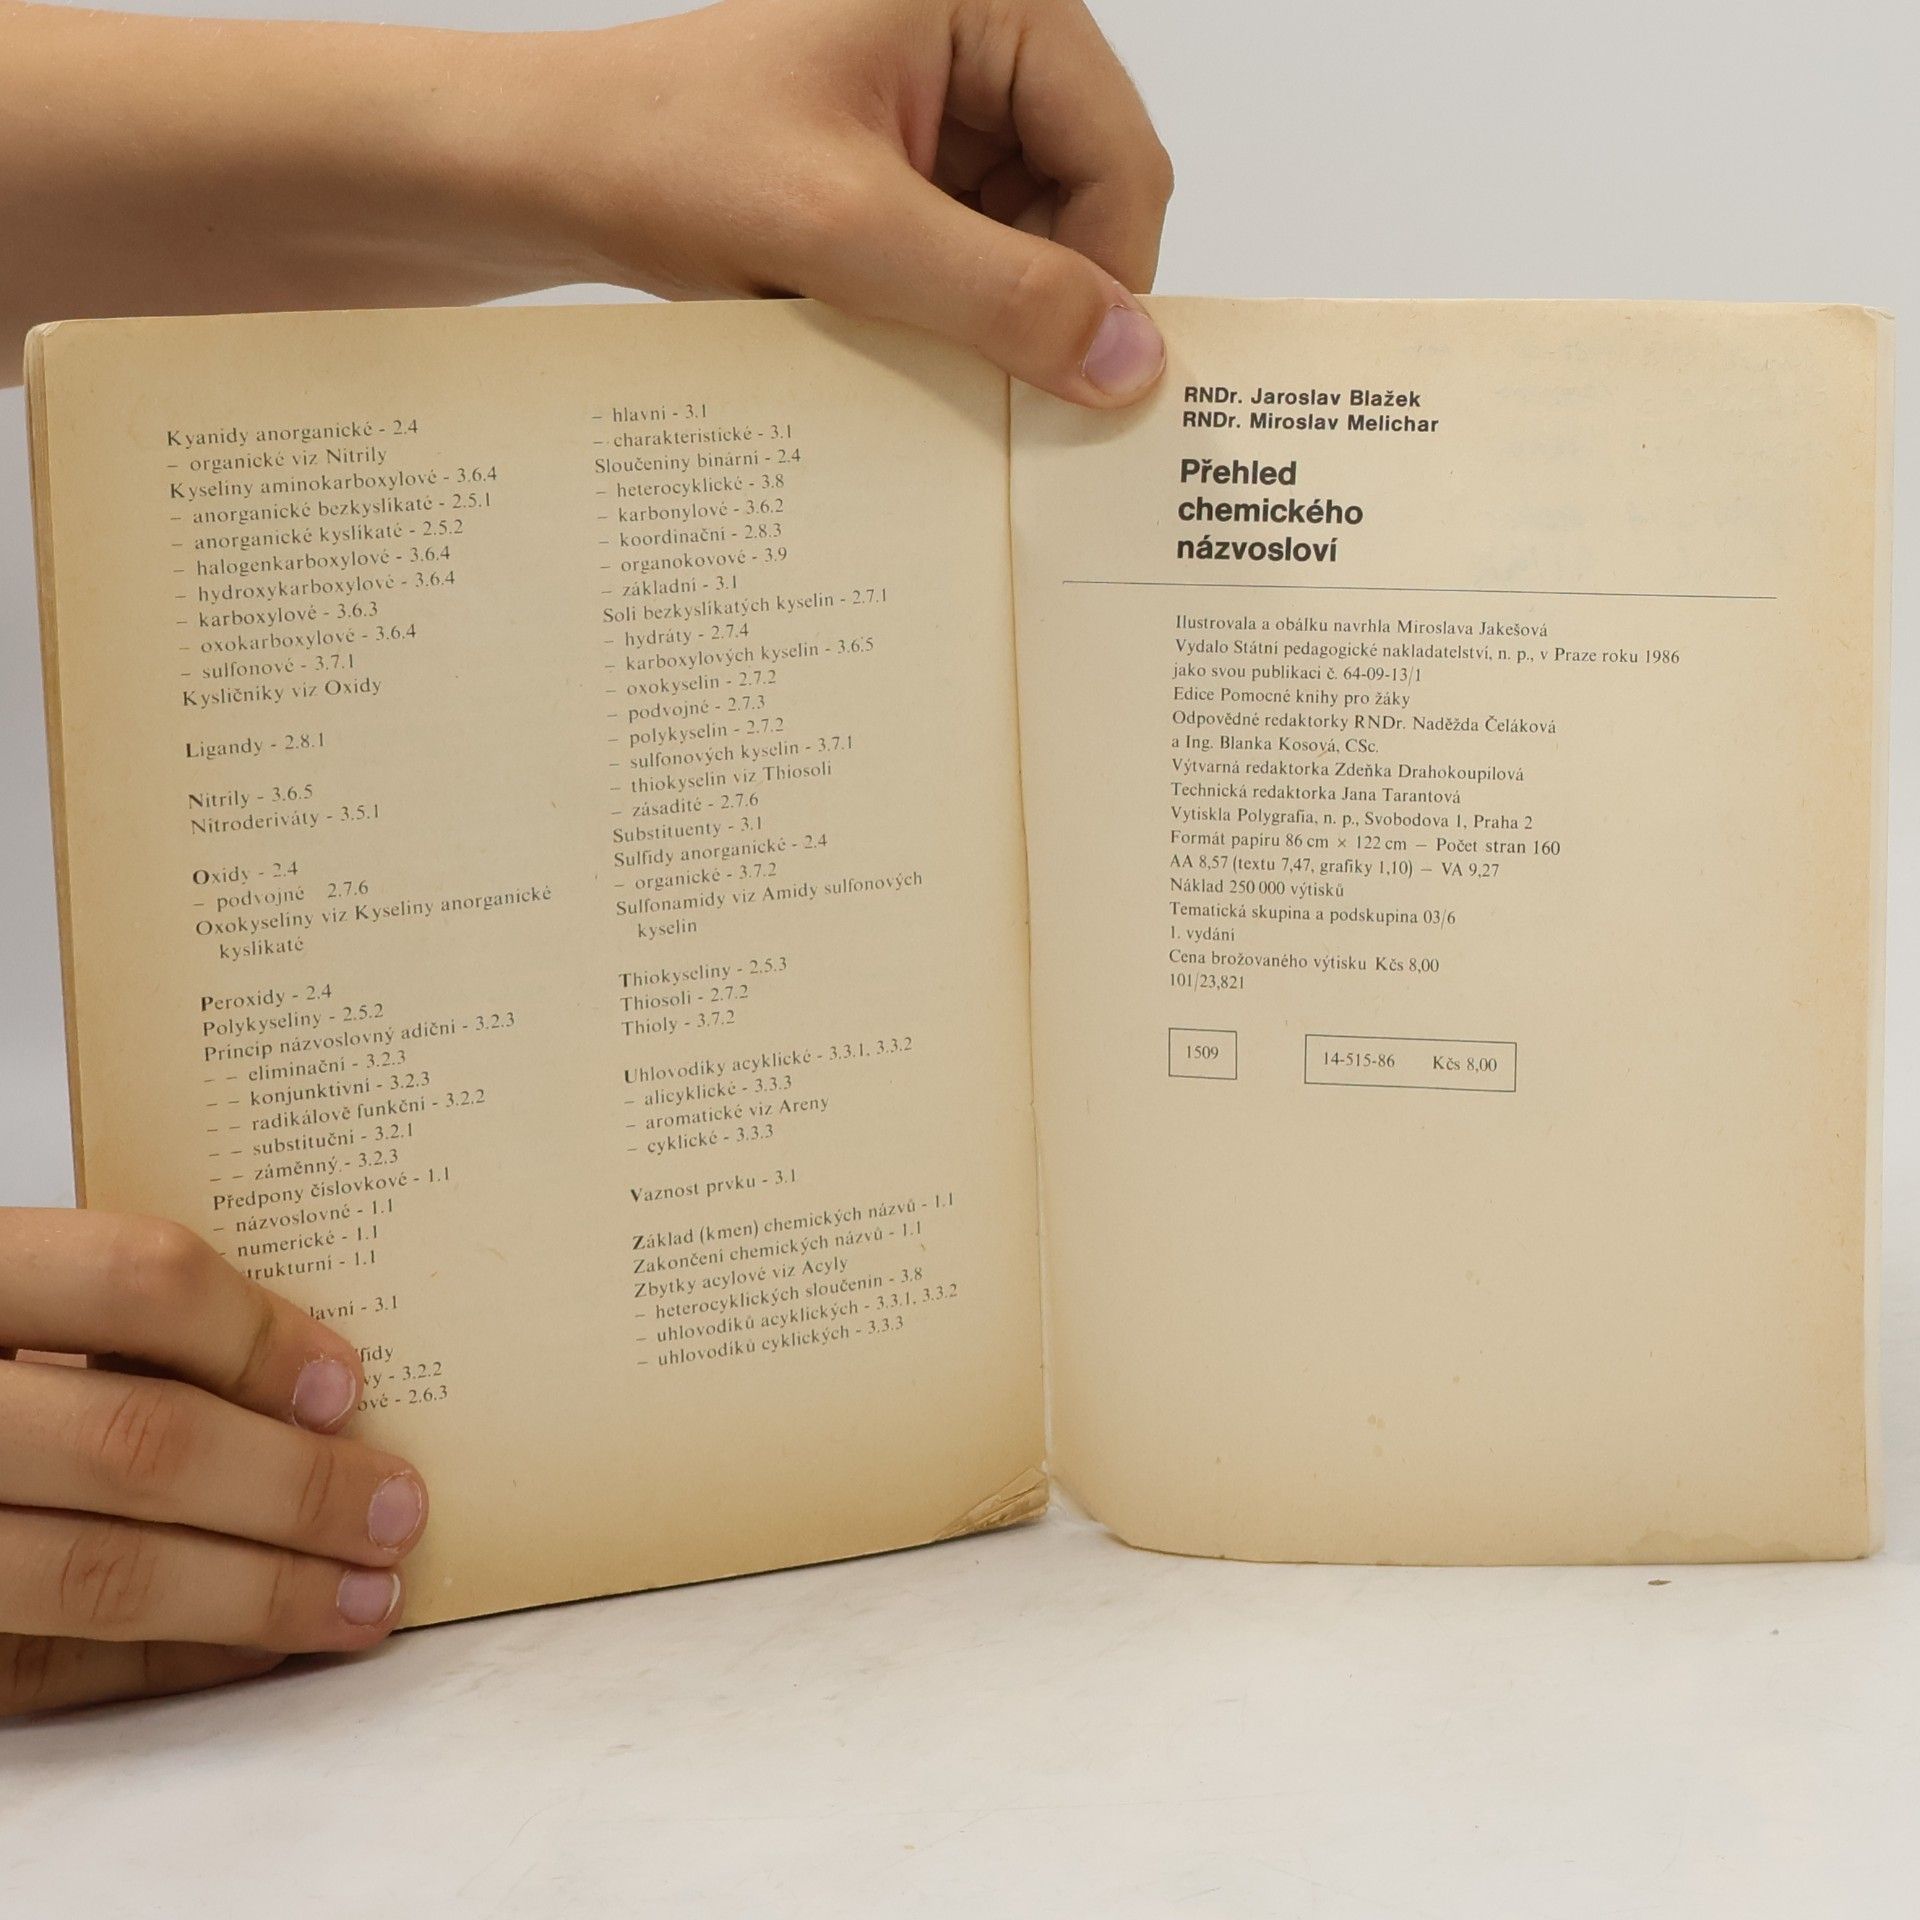 Kyanidy anorganické - 2.4
– organické viz Nitrily
Kyseliny aminokarboxylové - 3.6.4
– anorganické bezkyslíkaté - 2.5.1
– anorganické kyslíkaté - 2.5.2
– halogenkarboxylové - 3.6.4
– hydroxykarboxylové - 3.6.4
– karboxylové - 3.6.3
– oxokarboxylové - 3.6.4
– sulfonové - 3.7.1
Kysličníky viz Oxidy
Ligandy - 2.8.1
Nitrily - 3.6.5
Nitroderiváty - 3.5.1
Oxidy - 2.4
– podvojné 2.7.6
Oxokyseliny viz Kyseliny anorganické
kyslíkaté
Peroxidy - 2.4
Polykyseliny - 2.5.2
Princip názvoslovný adiční - 3.2.3
– – eliminační - 3.2.3
– – konjunktivní - 3.2.3
– – radikálově funkční - 3.2.2
– – substituční - 3.2.1
– – záměnný - 3.2.3
Předpony číslovkové - 1.1
– názvoslovné - 1.1
– numerické - 1.1
trukturní - 1.1
lavní - 3.1
lfidy
vy - 3.2.2
ové - 2.6.3
– hlavní - 3.1
– charakteristické - 3.1
Sloučeniny binární - 2.4
– heterocyklické - 3.8
– karbonylové - 3.6.2
– koordinační - 2.8.3
– organokovové - 3.9
– základní - 3.1
Soli bezkyslíkatých kyselin - 2.7.1
– hydráty - 2.7.4
– karboxylových kyselin - 3.6.5
– oxokyselin - 2.7.2
– podvojné - 2.7.3
– polykyselin - 2.7.2
– sulfonových kyselin - 3.7.1
– thiokyselin viz Thiosoli
– zásadité - 2.7.6
Substituenty - 3.1
Sulfidy anorganické - 2.4
– organické - 3.7.2
Sulfonamidy viz Amidy sulfonových
kyselin
Thiokyseliny - 2.5.3
Thiosoli - 2.7.2
Thioly - 3.7.2
Uhlovodíky acyklické - 3.3.1, 3.3.2
– alicyklické - 3.3.3
– aromatické viz Areny
– cyklické - 3.3.3
Vaznost prvku - 3.1
Základ (kmen) chemických názvů - 1.1
Zakončení chemických názvů - 1.1
Zbytky acylové viz Acyly
– heterocyklických sloučenin - 3.8
– uhlovodíků acyklických - 3.3.1, 3.3.2
– uhlovodíků cyklických - 3.3.3
RNDr. Jaroslav Blažek
RNDr. Miroslav Melichar
Přehled
chemického
názvosloví
Ilustrovala a obálku navrhla Miroslava Jakešová
Vydalo Státní pedagogické nakladatelství, n. p., v Praze roku 1986
jako svou publikaci č. 64-09-13/1
Edice Pomocné knihy pro žáky
Odpovědné redaktorky RNDr. Naděžda Čeláková
a Ing. Blanka Kosová, CSc.
Výtvarná redaktorka Zdeňka Drahokoupilová
Technická redaktorka Jana Tarantová
Vytiskla Polygrafia, n. p., Svobodova 1, Praha 2
Formát papíru 86 cm × 122 cm – Počet stran 160
AA 8,57 (textu 7,47, grafiky 1,10) – VA 9,27
Náklad 250 000 výtisků
Tematická skupina a podskupina 03/6
1. vydání
Cena brožovaného výtisku Kčs 8,00
101/23,821
1509
14-515-86 Kčs 8,00